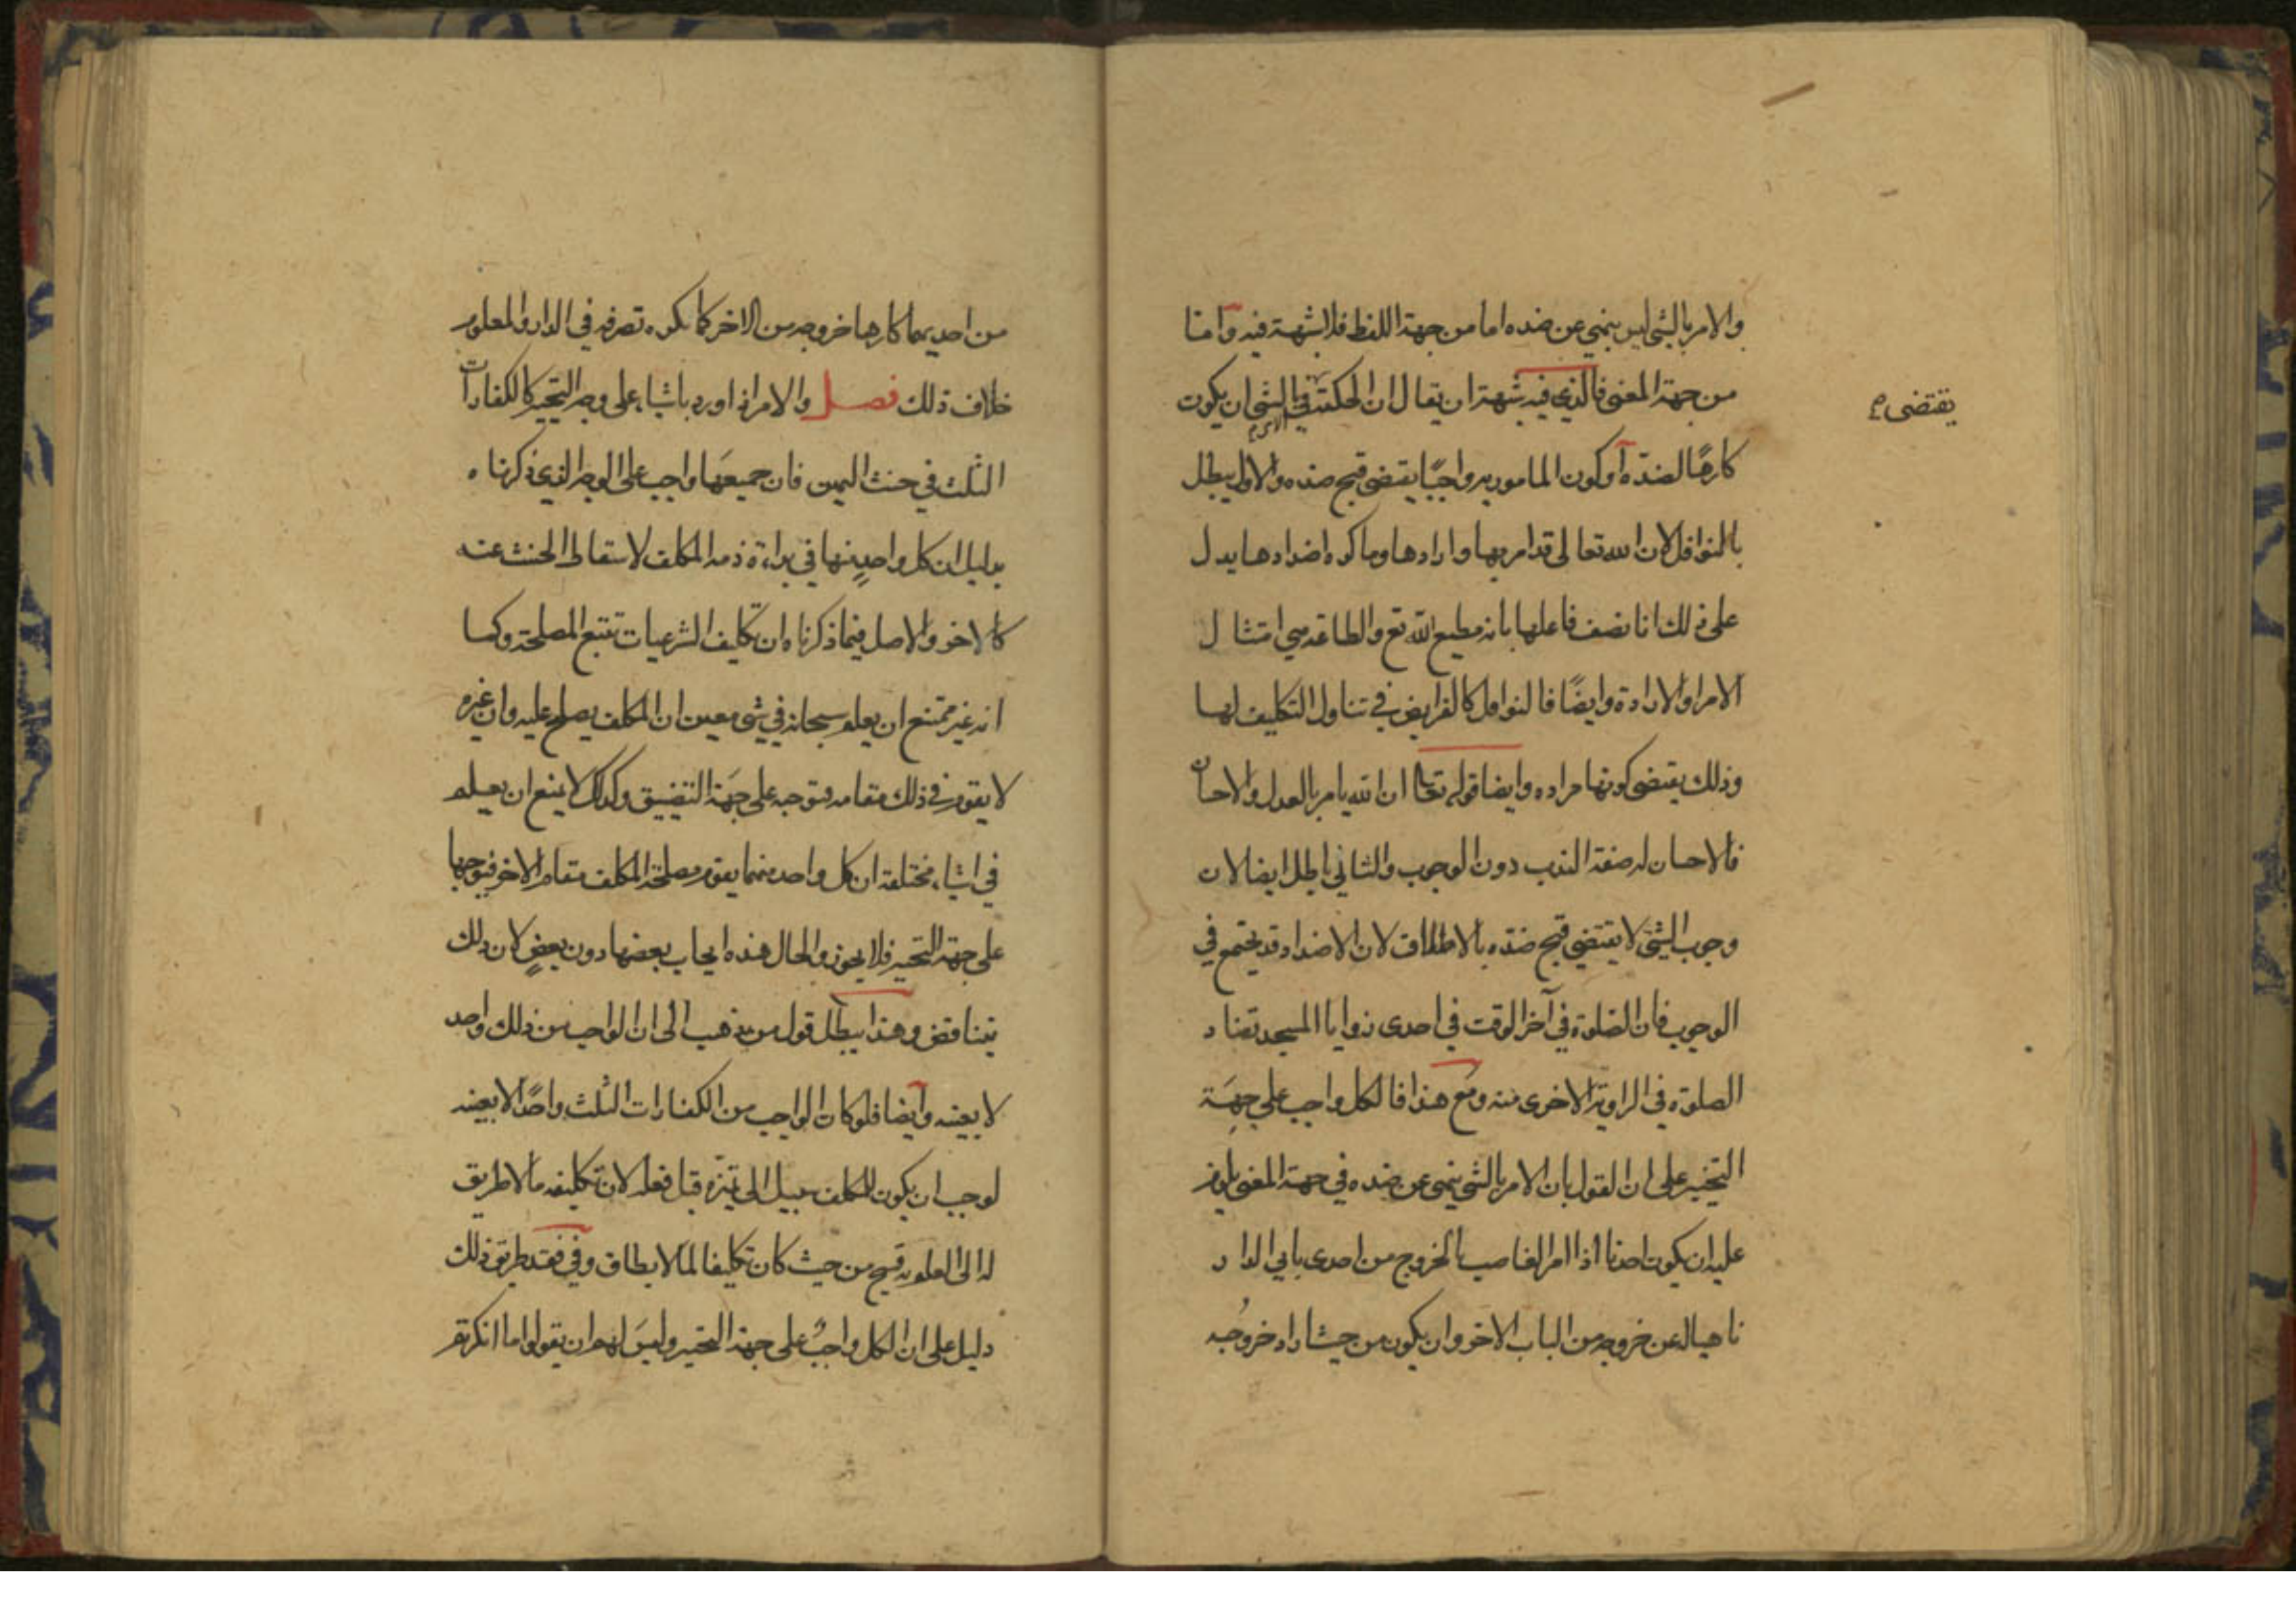 والامر بالشي ليس بنهي عن ضده اما من جهة اللفظ فلا شبهة فيه وامّا
من جهة المعنى فالذي فيه شبهة ان يقال ان الحكمة في الشي ان يكون
يقتضى
كارهًا لضدّه أو كون المامور به واجبًا يقتضى قبح ضده والاول يبطل
بالنوافل لان الله تعالى قد امر بها وارادها وما كره اضدادها يدل
على ذلك انا نصف فاعلها بانه مطيع الله تع والطاعة هي امتثال
الامر او الارادة وايضًا فالنوافل كالفرايض في تناول التكليف لها
وذلك يقتضى كونها مراده وايضا قوله تعا ان الله يامر بالعدل والاحسان
فالاحسان له صفة الندب دون الوجوب والثاني باطل ايضا لان
وجوب الشي لا يقتضي قبح ضدّه بالاطلاق لان الاضداد قد يجتمع في
الوجوب فان الصلوة في آخر الوقت في احدى زوايا المسجد تضاد
الصلوة في الزاوية الاخرى منه ومع هذا فالكل واجب علي جهَة
التخيير على ان القول بان الامر بالشي نهى عن ضده في جهة المعنى يلزم
عليه ان يكون احدنا اذا امر الغاصب بالخروج من احدى بابي الدار
ناهيا له عن خروجه من الباب الاخر وان يكون من حيث اراد خروجُه
من احديهما كارها خروجه من الاخر كما يكره تصرفه في الدار والمعلوم
خلاف ذلك فصل والامر اذا ورد باشياء على وجه التخيير كالكفارات
الثلث في حنث اليمين فان جميعَها واجب على الوجه الذي ذكرناه
بدليل ان كل واحدٍ منها في براءة ذمه المكلف لاسقاط الحنث عنه
كالاخر والاصل فيما ذكرناه ان تكليف الشرعيات تتبع المصلحة وكما
انه غير ممتنع ان يعلم سبحانه في شي معين ان المكلف يصلح عليه وان غيره
لا يقوم في ذلك مقامه فتوجبه على جهَة التضييق وكذلك لا يمنع ان يعلم
في اشياء مختلفة ان كل واحد منهما يقوم مصلحة المكلف مقام الاخر فتوجبها
على جهة التخيير فلا يجوز والحال هذه ايجاب بعضها دون بعضٍ لان ذلك
يتناقض وهذا يبطل قول من يذهب الى ان الواجب من ذلك واحد
لا بعينه وأيضا فلو كان الواجب من الكفارات الثلث واحدًا لا بعينه
لوجب ان يكون للمكلف سبيل الى تميّزه قبل فعله لان تكليفه ما لا طريق
له الى العلم به قبيح من حيث كان تكليفا لما لا يطاق وفي فقد طريق ذلك
دليل على ان الكل واجبٌ على جهة التخيير وليسَ لهم ان يقولوا ما انكرتم